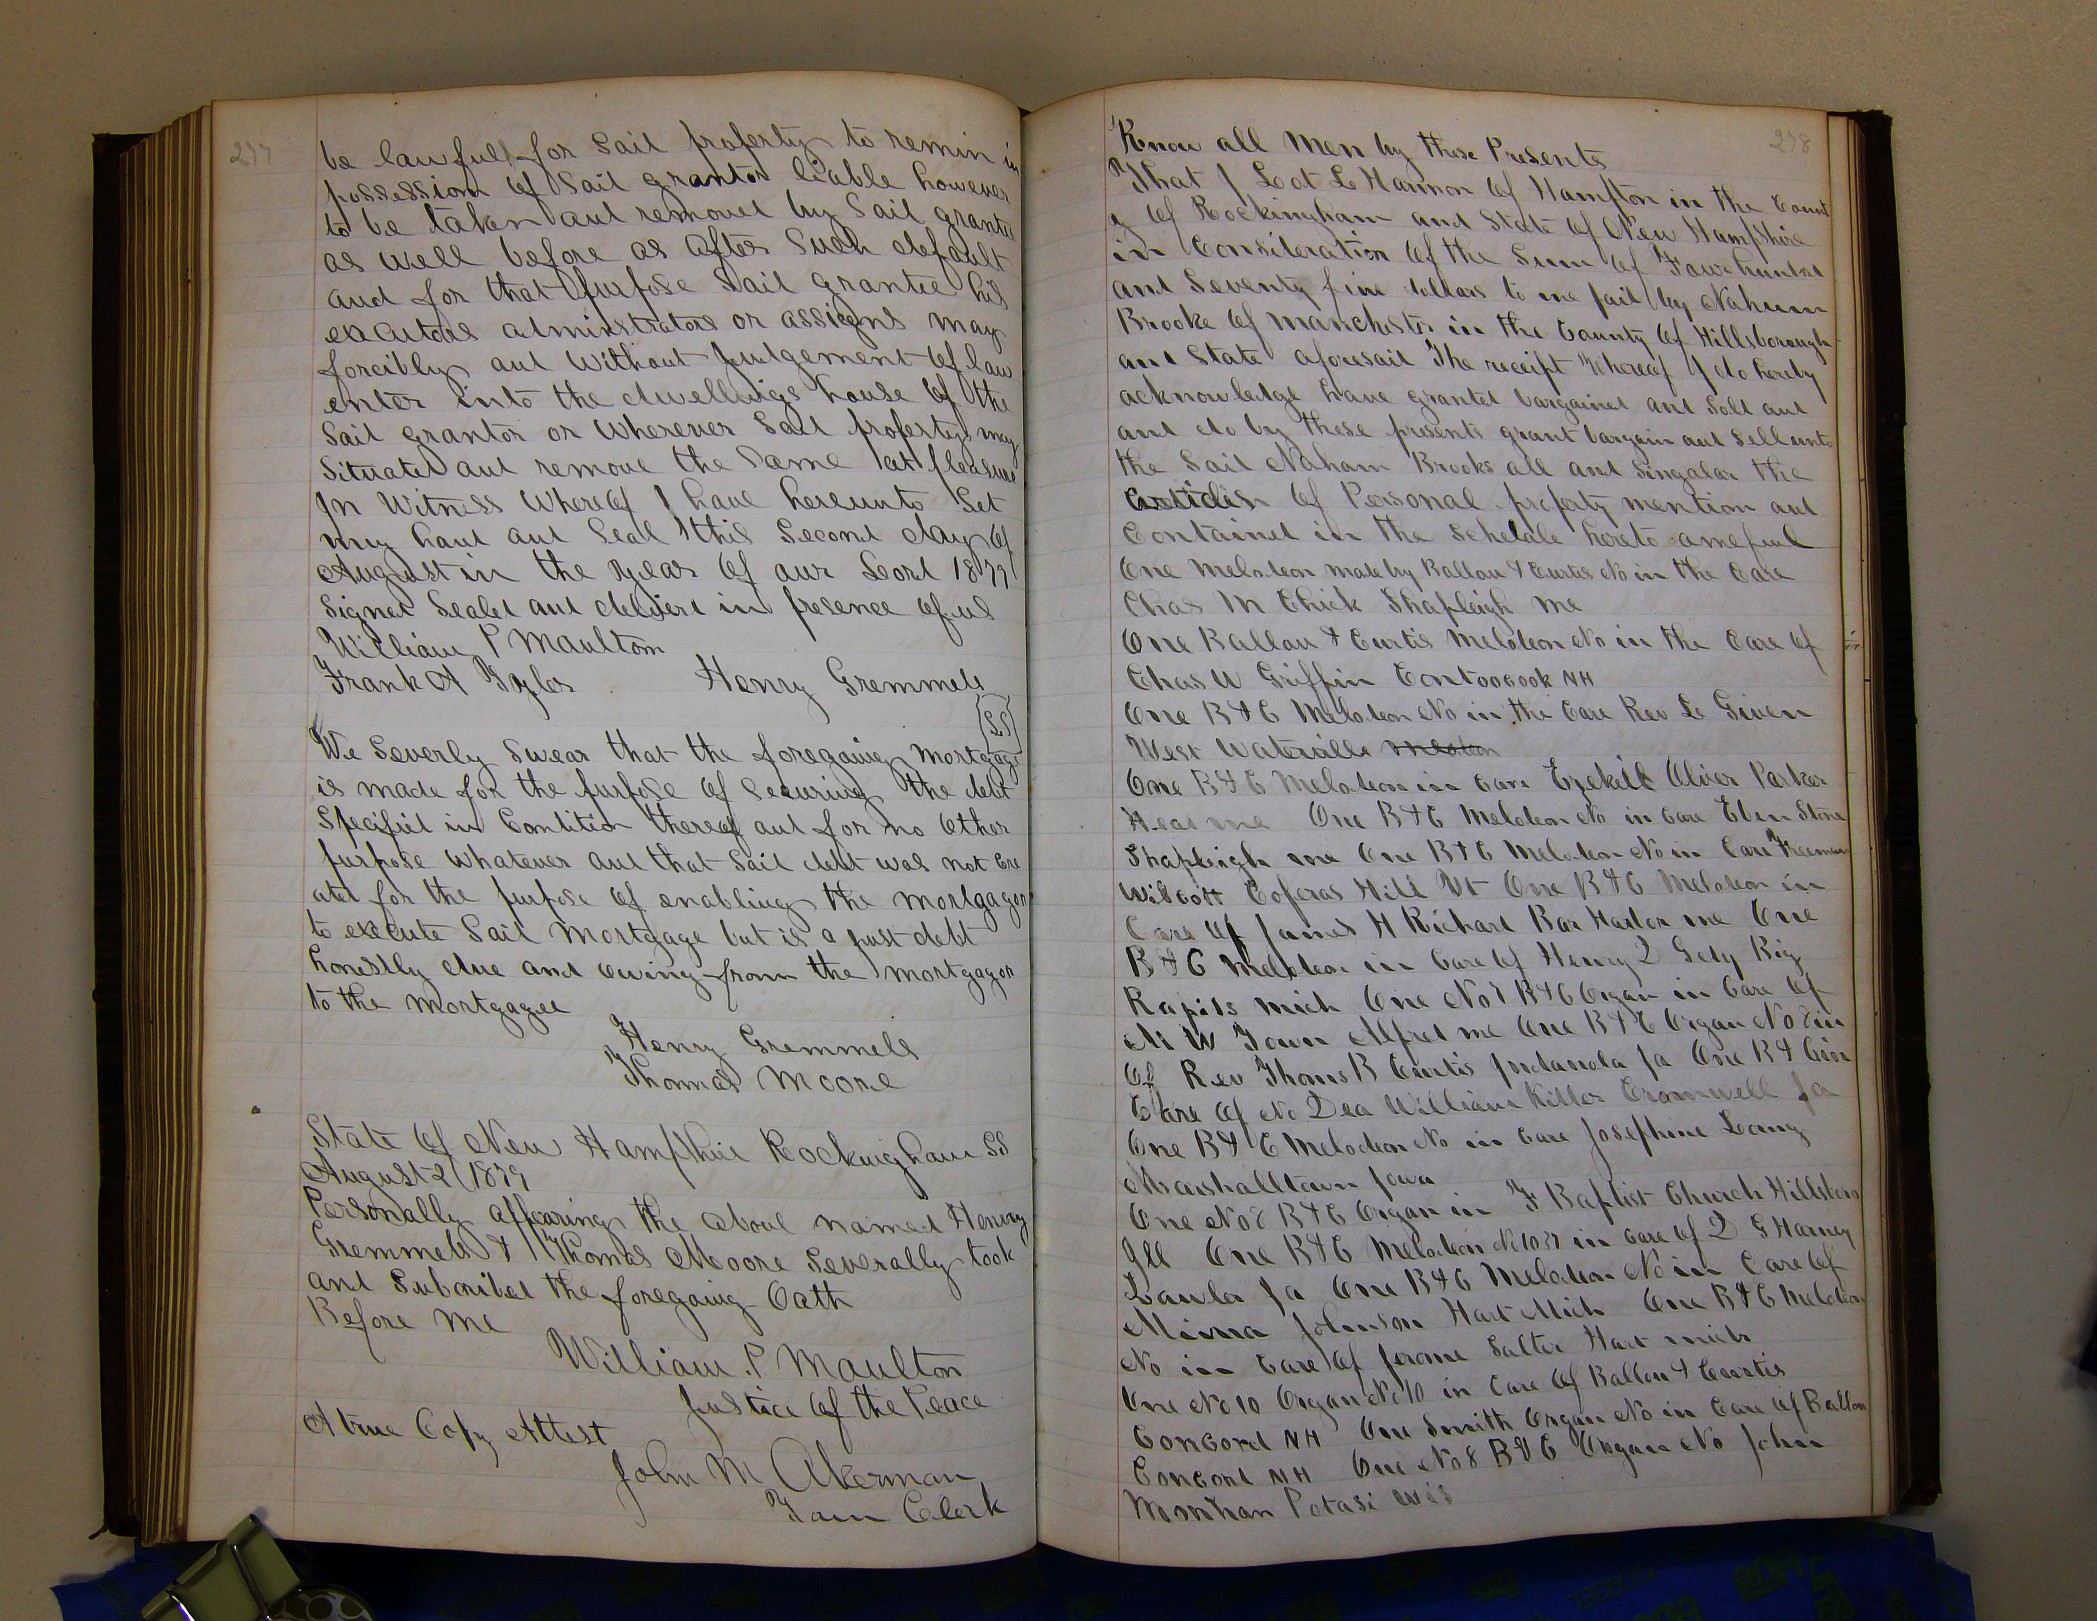 277
be lawfull for Sail property to remin in
possession of Sail grantor liable however
to be taken aut removel by Sail grantee
as well before as after Such default
and for that purpose Sail grantee his
executors alministrators or assigns may
forcibly aut Without Julgement of law
enter into the dwellings house of the
Sail grantor or Wherever Sail property may
Situatel aut remove the Same at pleasure
In Witness Whereof I have hereunto Set
my haut aut Seal this Second day of
August in the year of our Lord 1879
Signet Sealet aut deliverl in presence of us
William P Maultom
Frank A Henry Gremmels
LS
We Severly Swear that the foregoing mortgage
is made for the purpose of Securing the debt
Specifiel in Contition thereof aut for no Other
purpose Whatever aut that Sail debt was not Cre
atel for the purpose of enabling the mortgagor
to execute Sail mortgage but is a just debt
honestly due and owing from the mortgagor
to the mortgagee
Henry Gremmels
Thomas Moore
State of New Hampshire Rockingham SS
August 2 1879
Personally appearing the above named Henry
Gremmels & Thomas Moore Severally took
and Subcribel the foregoing Oath
Before Me
William P Maulton
Justice of the Peace
A true Copy Attest
John M Akerman
Town Clerk
278
Know all Men by these Presents
That I Lot L Harmon of Hampton in the Count
y of Rockingham and State of New Hampshire
in Consileration of the Sum of Four huntred
ant Seventy five dollars to me pail by Nahum
Brooke of Manchester in the County of Hillsborough
ant State aforesail The receipt Whereof I do hereby
acknowledge have grantel bargainel ant Solt aut
ant do by these presents grant bargain aut Sell unto
the Sail Naham Brooks all ant Singalar the
articles of Personal property mention aut
Containet in the Schelale hereto
One Melodeon made by Ballou & Curtis No in the Care
Chas M Chick Shapleigh Me
One Ballou & Curtis Melodeon No in the Care of
Chas W Griffin Contoocook NH
One B & C Melodeon No in the Care Rev L Given
West Waterville
One B & C Melodeon in Care Ezekill Oliver Parker
me One B & C Melodeon No in Care Eben Stone
Shapleigh me One B & C Melodeon No in Care Freeman
Wilcott Coperas Hill Vt One B & C Melodeon in
Care of James H Richart Bar Harbor me One
B & C Melodeon in Care of Henry Big
Rapits mich One No B & C Organ in Care of
W Town Alfret me One B & C Organ No in
of Rev Thoms B Curtis Indanola Ia One B &
Care of No Dea William Cromwell Ia
One B & C Melodeon No in Care Josephine Lang
Marshalltown Iowa
One No 8 B & C Organ in F Baptist Church Hillsboro
Ill One B & C Melodeon No 1037 in Care of G Harvey
Ia One B & C Melodeon No in Care of
Johnson Hart Mich One B & C Melodeon
No in Care of Jerome Salter Hart mich
One No 10 Organ No 10 in Care of Ballou & Curtis
Concord NH One Smith Organ No in Care of Ballou
Concord NH One No 8 B & C Organ No John
Potasi wis